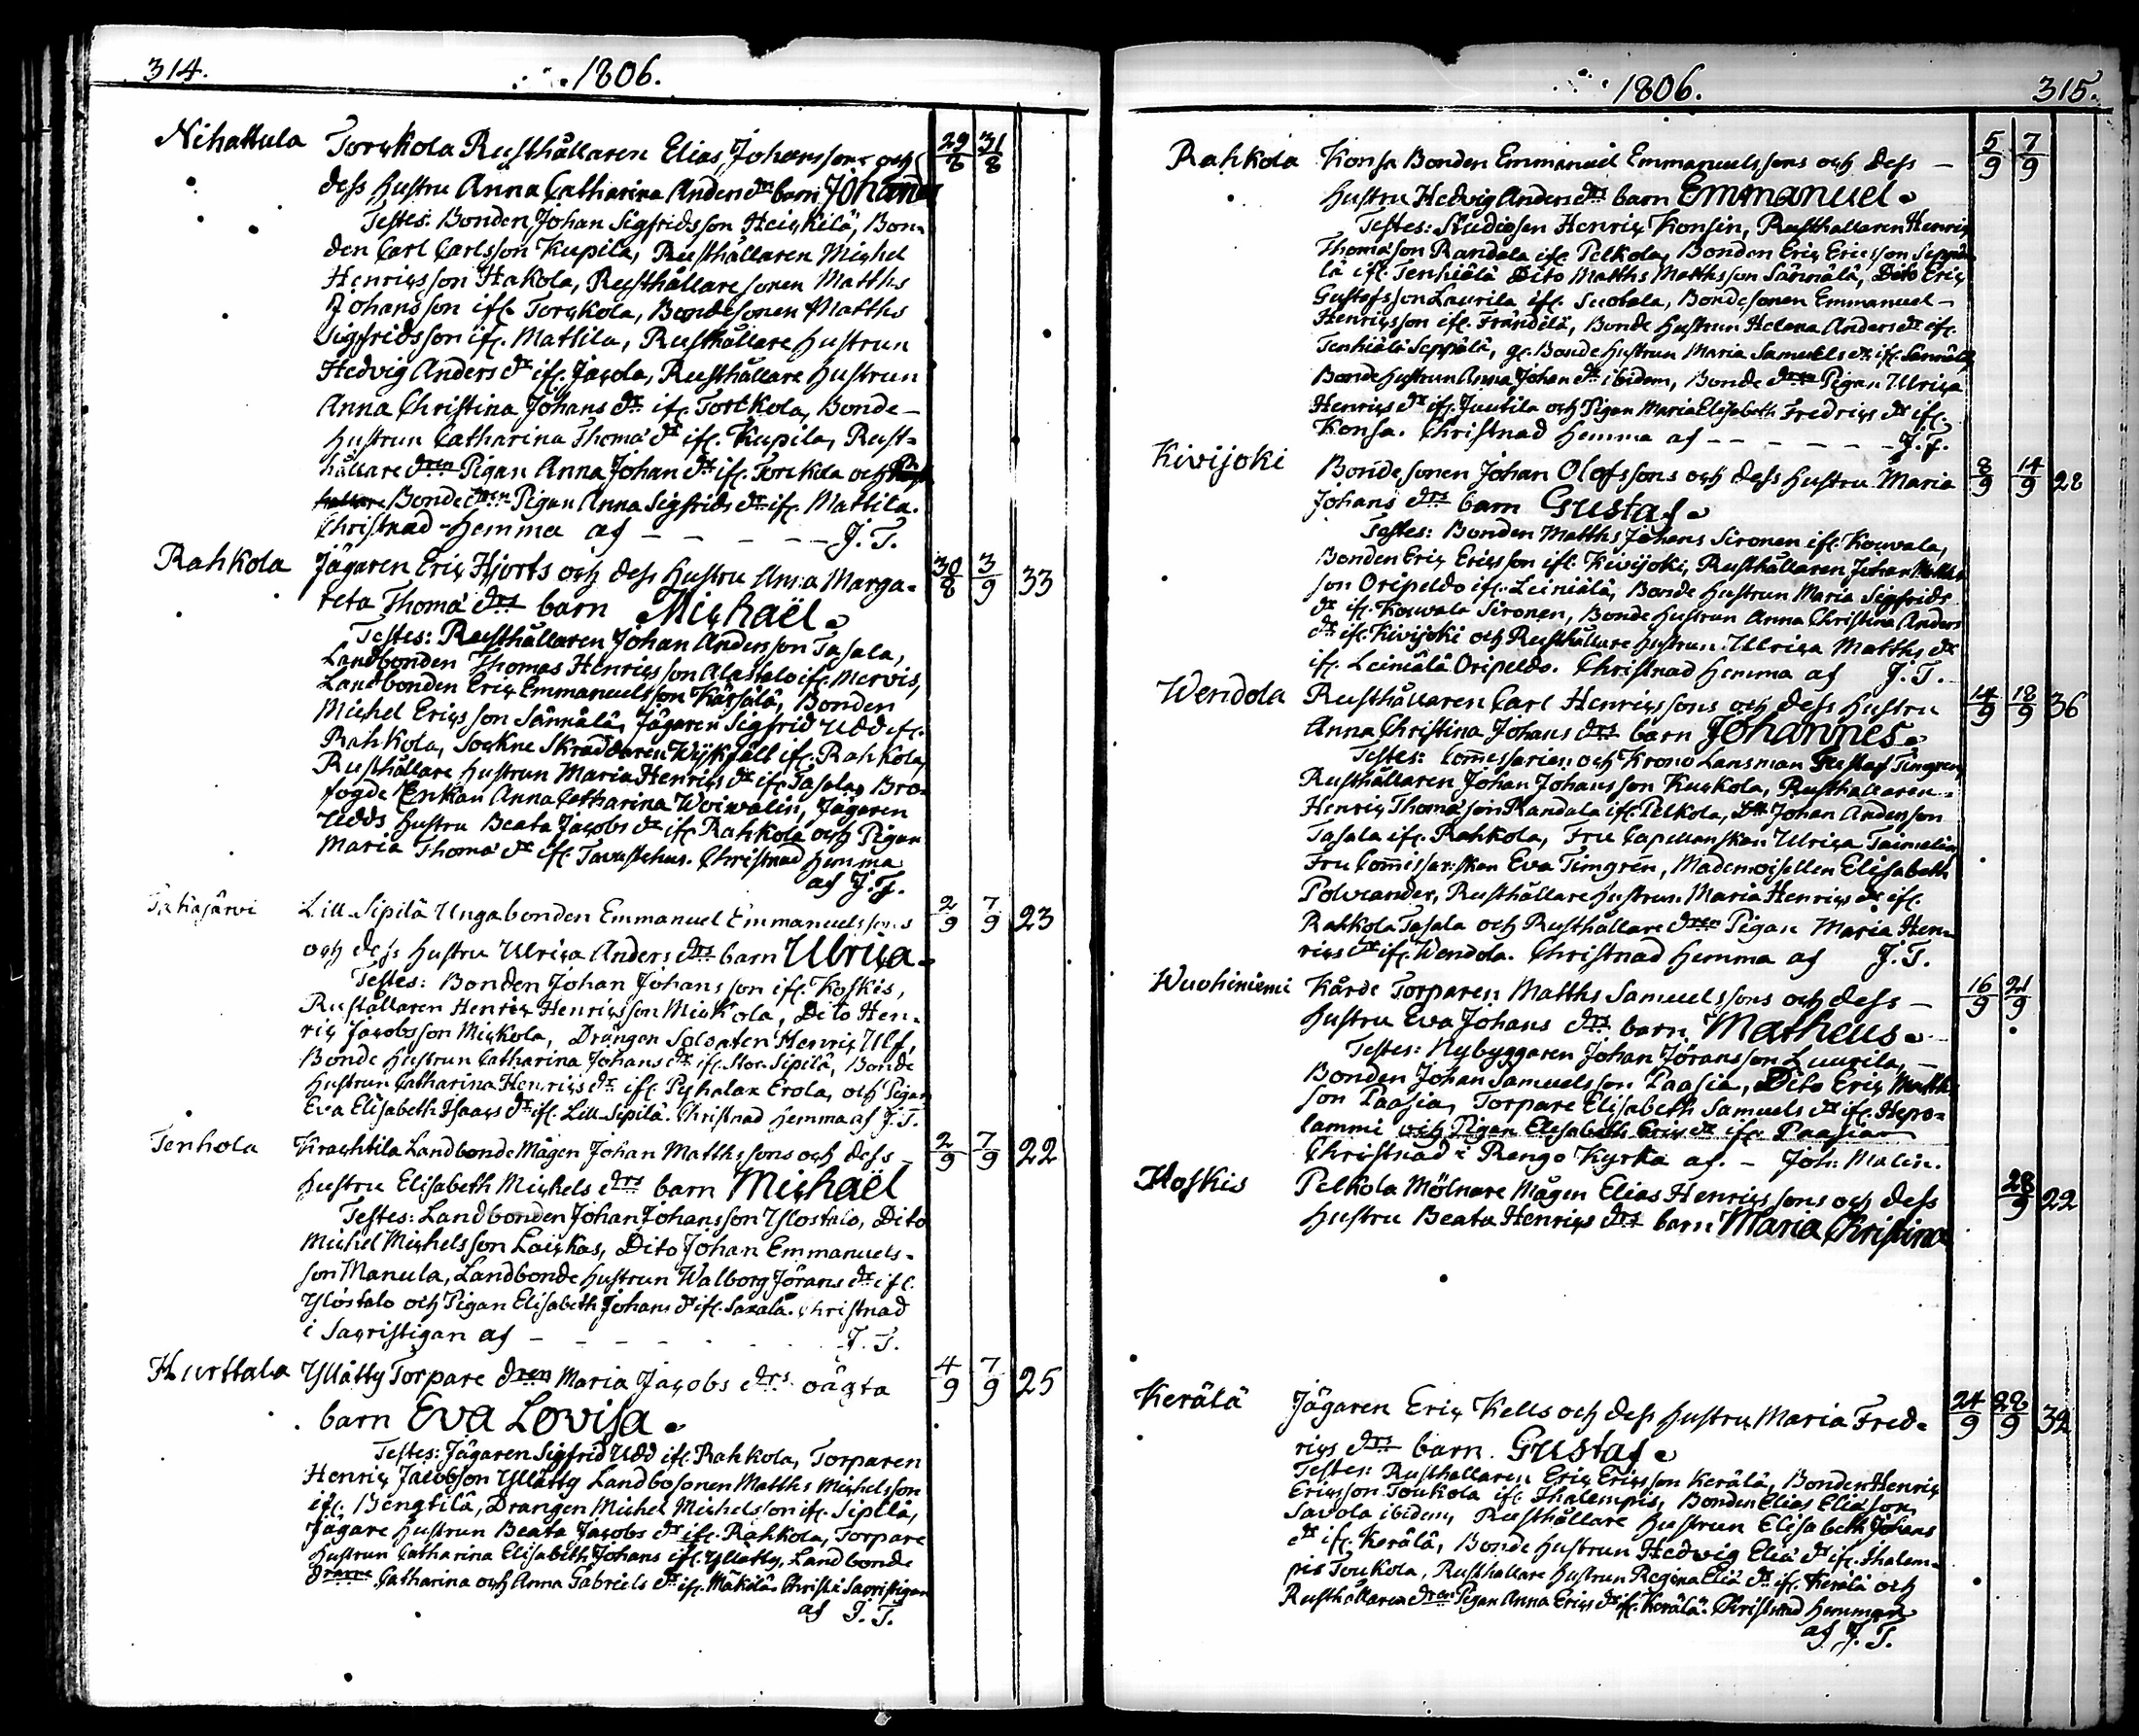 314.
1806.
Nihattula Torckola Rusthållaren Elias Johanssons och 29/8 31/8
dess hustru Anna Catharina Anders drs barn Johannes
Testes: Bonden Johan Sigfridsson Heickilä, Bon-
den Carl Carlsson Kupila, Rusthållaren Michel
Henricsson Hakola, Rusthållare sonen Matths
Johansson ifr. Torckola, Bonde sonen Matths
Sigfridsson ifr. Mattila, Rusthållare hustrun
Hedvig Anders dr ifr. Jacola, Rusthållare hustrun
Anna Christina Johans dr ifr. Torckola, Bonde-
hustrun Catharina Thomæ dr ifr. Kupila, Rust-
hållare dren Pigan Anna Johan dr ifr. Torckola och
Bonde dren Pigan Anna Sigfrids dr ifr. Mattila.
Christnad hemma af - - - - - J. T.
Rahkola Jägaren Eric Hjorts och dess hustru Anna Marga- 30/8 3/9 33
reta Thomæ drs barn Michaël.
Testes: Rusthållaren Johan Andersson Tasala,
Landbonden Thomas Henricsson Alastalo ifr. Mervis,
Landbonden Eric Emmanuelsson Kärsälä, Bonden
Michel Ericsson Sännälä, Jägaren Sigfrid Udd ifr.
Rahkola, Sockne Skräddaren Wijkfält ifr. Rahkola,
Rusthållare hustrun Maria Henrics dr ifr. Tasala, Bro-
fogde Enkan Anna Catharina Woivalin, Jägaren
Udds hustru Beata Jacobs dr ifr. Rahkola och Pigan
Maria Thomæ dr ifr. Tavastehus. Christnad hemma
af J. T.
Takajärvi Lill Sipilä Ungabonden Emmanuel Emmanuelssons 2/9 7/9 23
och dess hustru Ulrica Anders drs barn Ulrica.
Testes: Bonden Johan Johansson ifr. Koskis,
Rustållaren Henric Henricsson Mickola, Dito Hen-
ric Jacobsson Mickola, Drängen Soldaten Henric Ulf,
Bonde hustrun Catharina Johans dr ifr. Stor Sipilä, Bonde
hustrun Catharina Henrics dr ifr. Erola, och Pigan
Eva Elisabeth Isaacs dr ifr. Lill Sipilä. Christnad hemma af J. T.
Tenhola Krachtila Landbonde Mågen Johan Matthssons och dess 2/9 7/9 22
hustru Elisabeth Michels drs barn Michaël
Testes: Landbonden Johan Johansson Ylostalo, Dito
Michel Michelsson Laickas, Dito Johan Emmanuels-
son Manula, Landbonde hustrun Walborg Jörans dr ifr.
Ylostalo och Pigan Elisabeth Johans dr ifr. Saxala. Christnad
i Sacristigan af - - - - J. T.
Hurttala Yllätty Torpare dren Maria Jacobs drs oägta 4/9 7/9 25
barn Eva Lovisa.
Testes: Jägaren Sigfrid Udd ifr. Rahkola, Torparen
Henric Jacobsson Yllätty Landbosonen Matths Michelsson
ifr. Bengtilä, Drängen Michel Michelsson ifr. Sipilä,
Jägare hustrun Beata Jacobs dr ifr. Rahkola, Torpare
hustrun Catharina Elisabeth Johans ifr. Yllätty, Landbonde
drarne Catharina och Anna Gabriels dr ifr. Mäkilä. Christ. i Sacristigan
af J. T.
1806.
315.
Rahkola Konsa Bonden Emmanuel Emmanuelssons och dess - 5/9 7/9
hustru Hedvig Anders drs barn Emmanuel.
Testes: Studiosen Henric Konsin, Rusthållaren Henric
Thomasson Randala ifr. Pelkola, Bonden Eric Ericsson Seppä-
lä ifr. Tenhiälä Dito Matths Matthsson Sännälä, Dito Eric
Gustafsson Laurila ifr. Suotala, Bondesonen Emmanuel -
Henricsson ifr. Frändilä, Bonde hustrun Helena Anders dr ifr.
Tenhiälä Seppälä, gl. Bonde hustrun Maria Samuels dr ifr. Sännälä,
Bonde hustrun Anna Johan dr ibidem, Bonde dren Pigan Ulrica
Henrics dr ifr. Juutila och Pigan Maria Elisabeth Fredrics dr ifr.
Konsa. Christnad hemma af - - - - - - J. T.
Kivijoki Bonde sonen Johan Olofssons och dess hustru Maria 8/9 14/9 28
Johans drs barn Gustaf.
Testes: Bonden Matths Johans Sironen ifr. Kouvala,
Bonden Eric Ericsson ifr. Kivijoki, Rusthållaren Johan Matths-
son Oripeldo ifr. Leiniälä, Bonde hustrun Maria Sigfrids
dr ifr. Kouvala Sironen, Bonde hustrun Anna Christina Anders
dr ifr. Kivijoki och Rusthållare hustrun Ulrica Matths dr
ifr. Leiniälä Oripeldo. Christnad hemma af J. T.
Wendola Rusthållaren Carl Henricssons och dess hustru 14/9 18/9 36
Anna Christina Johans drs barn Johannes.
Testes: Com̄issarien och Krono Länsman Gustaf Timgren,
Rusthållaren Johan Johansson Kuckola, Rusthållaren
Henric Thomasson Randala ifr. Pelkola, Dto Johan Andersson
Tasala ifr. Rahkola, Fru Capellanskan Ulrica Taimelin,
Fru Com̄issariskan Eva Timgrén, Mademoisellen Elisabeth
Polviander, Rusthållare hustrun Maria Henrics dr ifr.
Rahkola Tasala och Rusthållare dren Pigan Maria Hen-
rics dr ifr. Wendola. Christnad hemma af J. T.
Wuohiniemi Kårde Torparen Matths Samuelssons och dess - 16/9 21/9
hustru Eva Johans drs barn Matheus.
Testes: Nybyggaren Johan Jöransson Luurila, -
Bonden Johan Samuelsson Paasia, Dito Eric Matths-
son Paasia, Torpare Elisabeth Samuels dr ifr. Hepo-
lammi och Pigan Elisabeth Erics dr ifr. Paasia
Christnad i Rengo Kyrka af. - Joh: Malin.
Koskis Pelkola Mölnare Mågen Elias Henricssons och dess 28/9 22
hustru Beata Henrics drs barn Maria Christina
Kerälä Jägaren Eric Kells och dess hustru Maria Fred- 24/9 28/9 32
rics drs barn Gustaf.
Testes: Rusthållaren Eric Ericsson Kerälä, Bonden Henric
Ericsson Toukola ifr. Ihalempis, Bonden Elias Eliasson
Savola ibidem, Rusthållare hustrun Elisabeth Johans
dr ifr. Kerälä, Bonde hustrun Hedvig Eliæ dr ifr. Ihalem-
pis Toukola, Rusthållare hustrun Regina Eliæ dr ifr. Kerälä och
Rusthållaren dren Pigan Anna Erics dr ifr. Kerälä. Christnad hemma
af J. T.